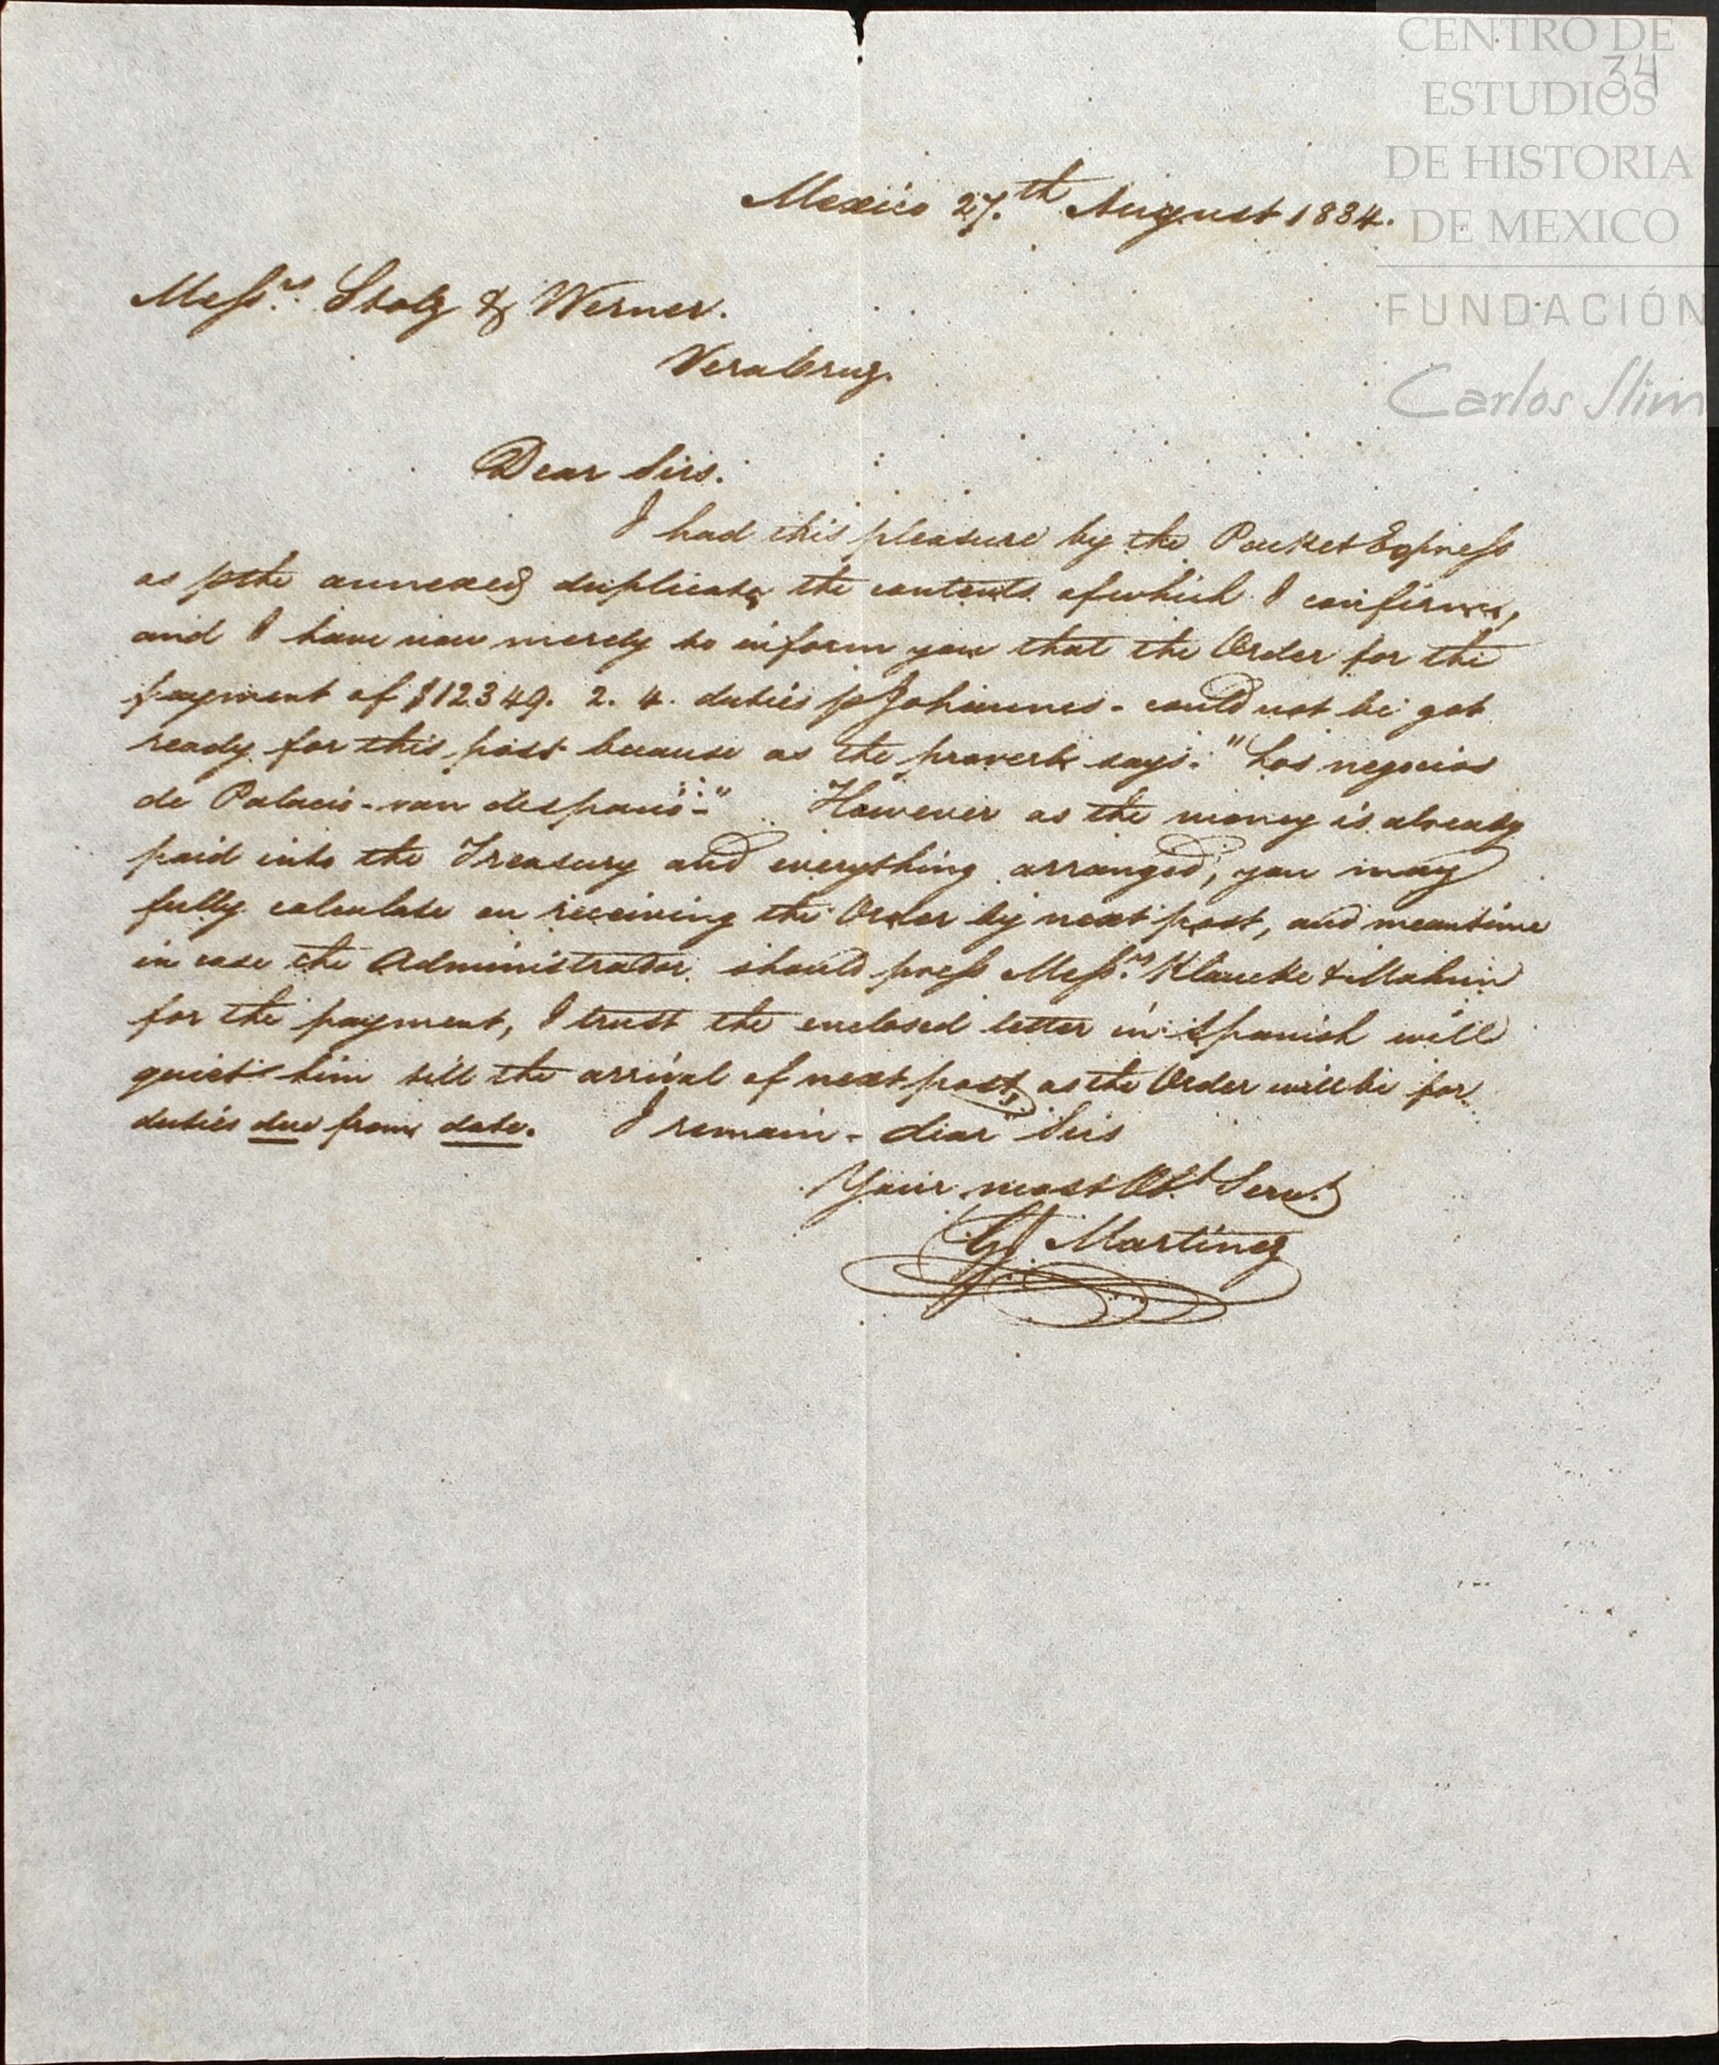 CENTRO DE
ESTUDIOS
DE HISTORIA
DE MEXICO
FUNDACIÓN
Carlos Slim
34
Mexico 27.th August 1834.
Messrs. Stolz & Werner.
VeraCruz.
Dear Sirs.
I had this pleasure by the Packet Express
as p the annexed duplicate, the contents of which I confirm,
and I have now merely to inform you that the Order for the
payment of $12349. 2. 4. duties p Johannes - could not be got
ready for this post because as the proverb says: "Los negocios
de Palacio - van despacio -" However as the money is already
paid into the Treasury and everything arranged, you may
fully calculate on receiving the Order by next post, and meantime
in case the Administrador should press Messrs. Klaucke &
for the payment, I trust the enclosed letter in Spanish will
quiet him till the arrival of next post, as the Order will be for
duties due from date. I remain - dear Sirs
Your most Obt. Servt.
G J Martinez